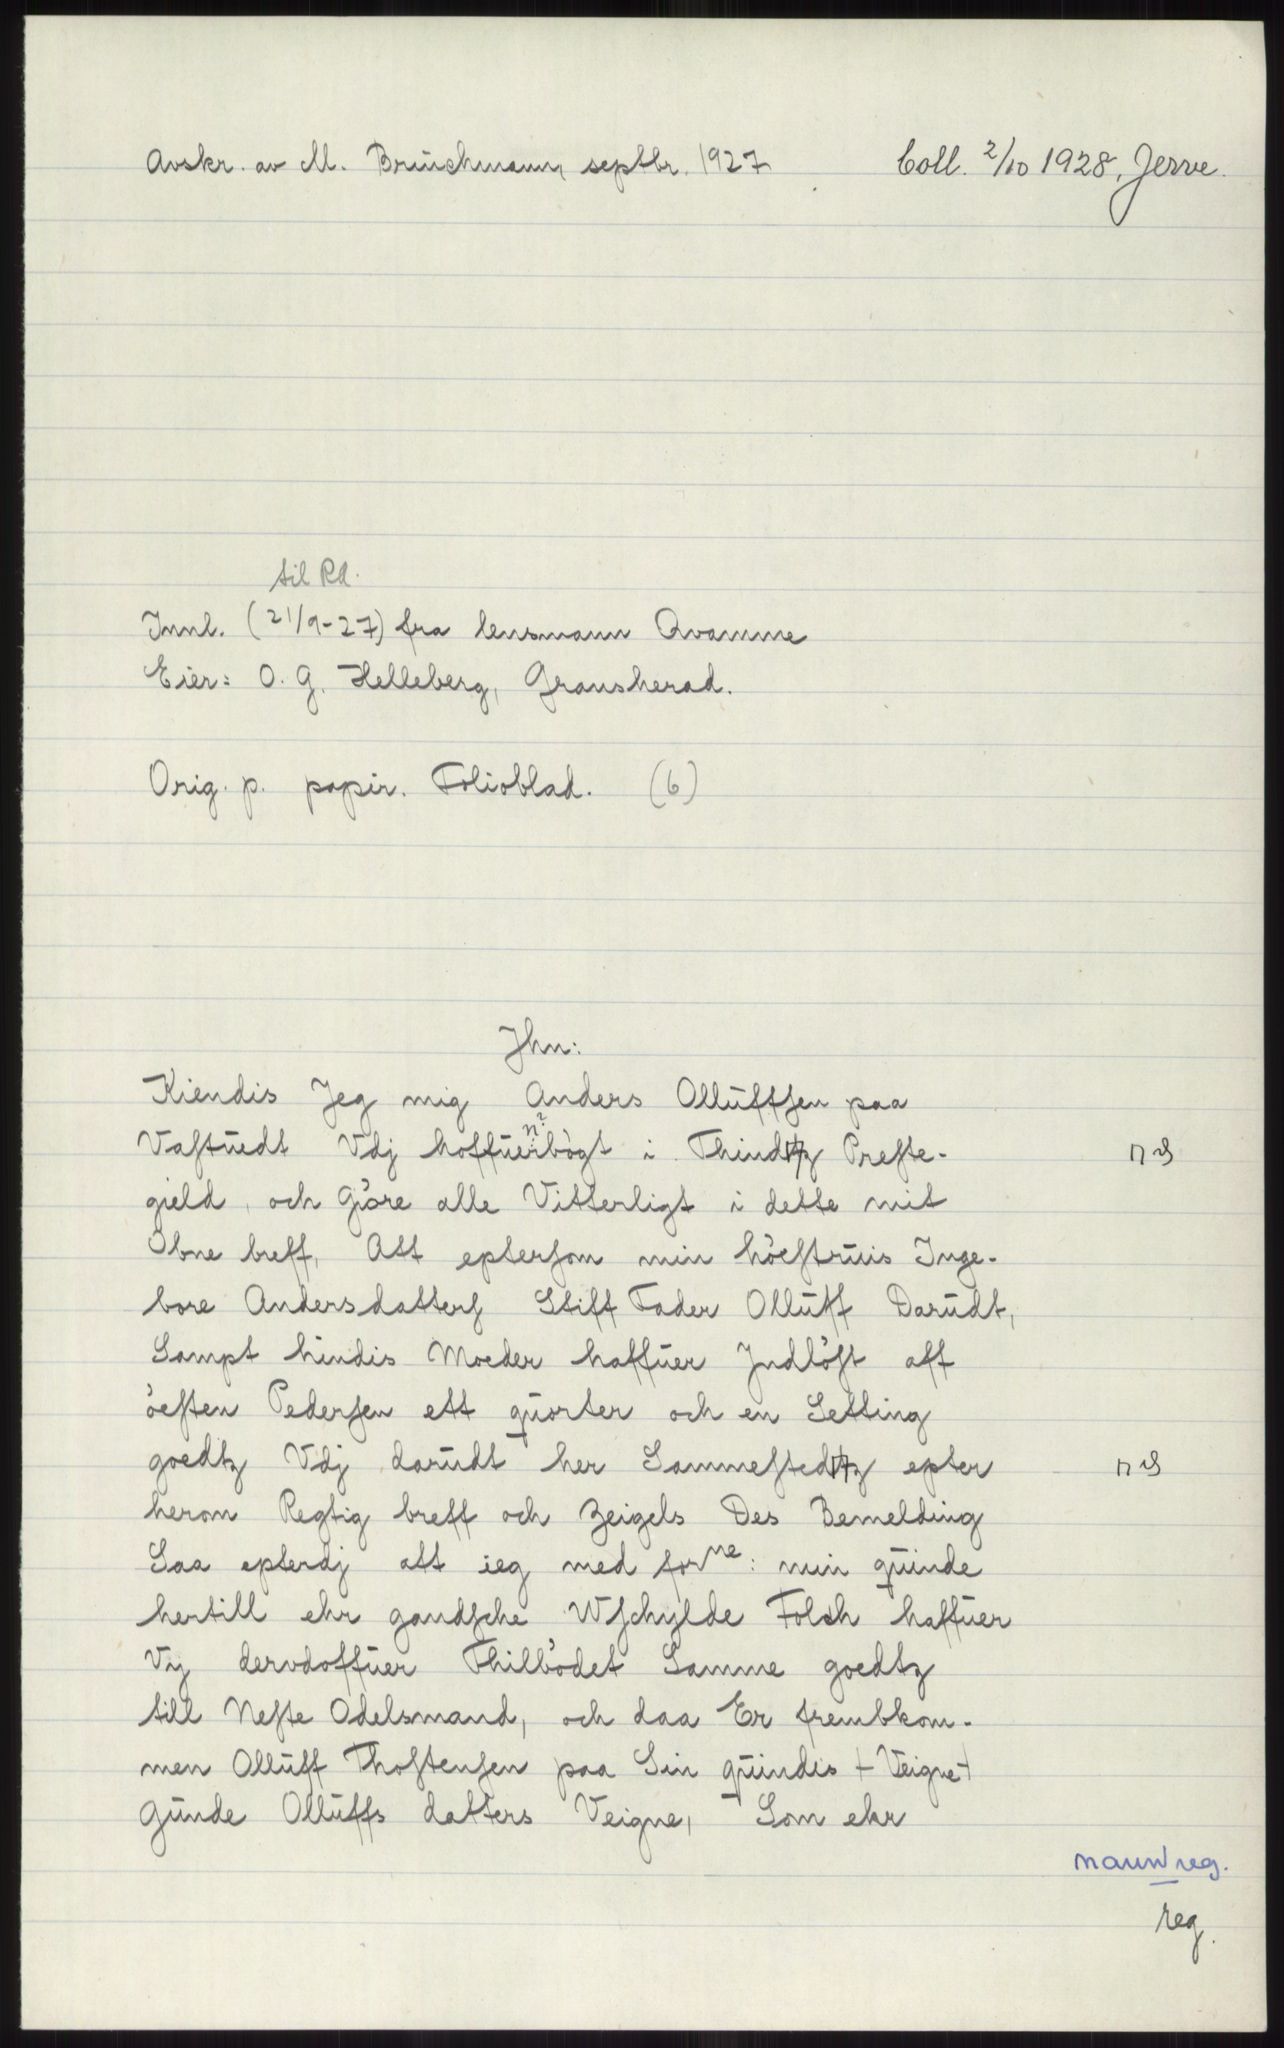 Avskr. av M. Bruchmann, septbr. 1927 Coll. 2/10 1928, Jerve.
til Rd.
Innl. (21/9-27) fra lensmann Qvamme
Eier: O. G. Helleberg, Gransherad.
Orig. p. papir. Folioblad. (6)
Jhn:
Kiendis Jeg mig Anders Olluffsen paa
Vastuedt Vdj hoffuenbögt i Thindtz Preste- ns
gield, och Giöre alle Vitterligt i dette mit
Obne breff, Att eptersom min höestruis Inge-
bore Andersdatters Stiff Fader Olluff Darudt,
Sampt hindis Moeder haffuer Jndlöst aff
öesten Pedersen ett quorter och en Setting
goedtz Vdj darudt her Sammestedtz epter ns
herom Regtig breff och Zeigels Des Bemelding
Saa epterdj att ieg med for ne: min quinde
hertill ehr gandsche Wschylde Folch haffuer
Vij dervdoffuer Thilbödet Samme goedtz
till Neste Odelsmand, och daa Er frembkom-
men Olluff Thostensen paa Sin quindis + Veigne +
Gunde Olluffs datters Veigne, Som ehr
navnreg.
reg.